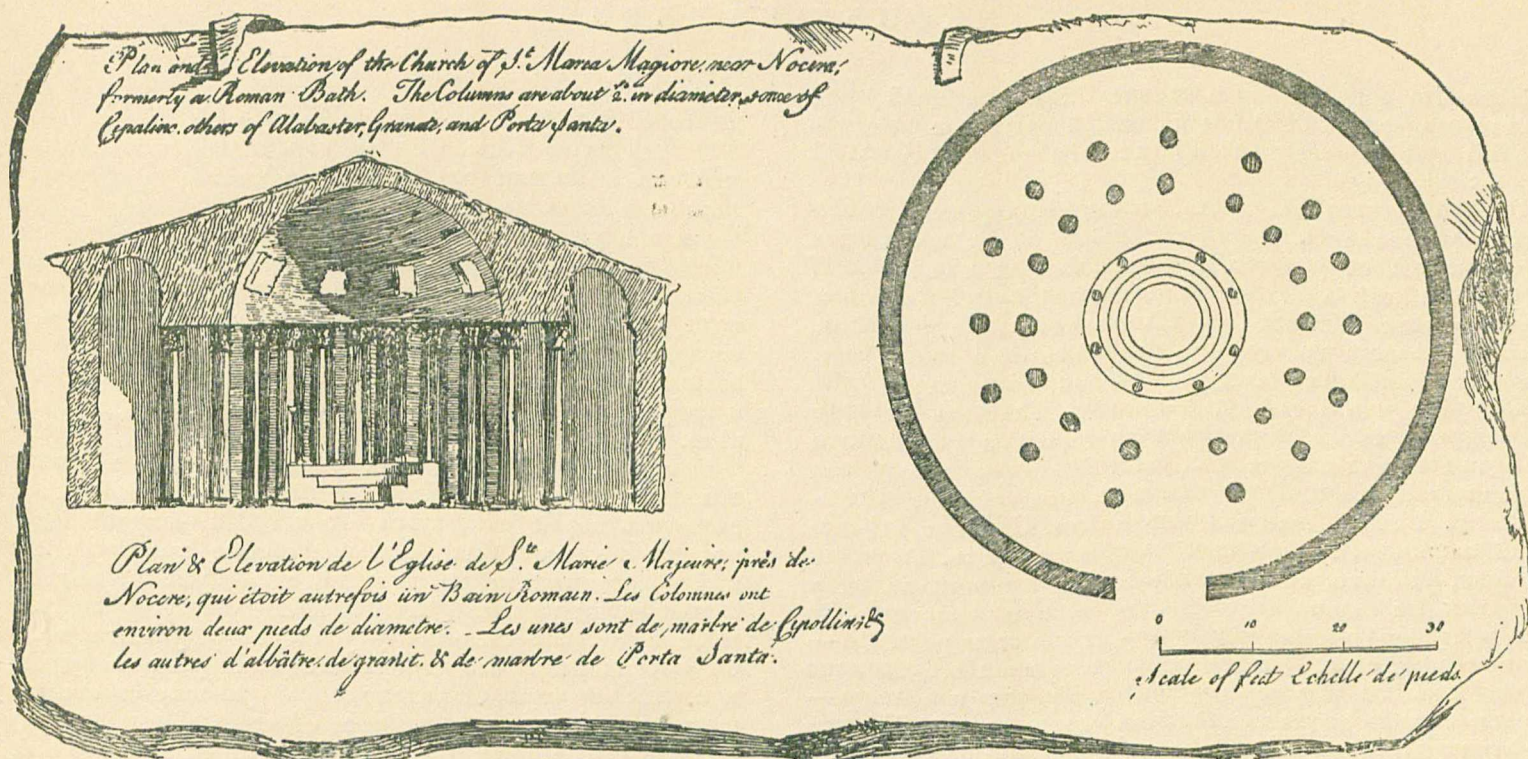 Plan and Elevation of the Church of S.t Maria Magiore, near Nocera,
formerly a Roman Bath. The Columns are about 2. in diameter, some of
Cipaline. others of Alabaster, Granate, and Porta Santa.
Plan & Elevation de l'Eglise de S.te Marie Majeure, près de
Nocere, qui étoit autrefois un Bain Romain. Les Colomnes ont
environ deux pieds de diametre. Les unes sont de marbre de Cipollini &
les autres d'albâtre, de granit. & de marbre de Porta Santa.
0 10 20 30
Scale of feet Echelle de pieds